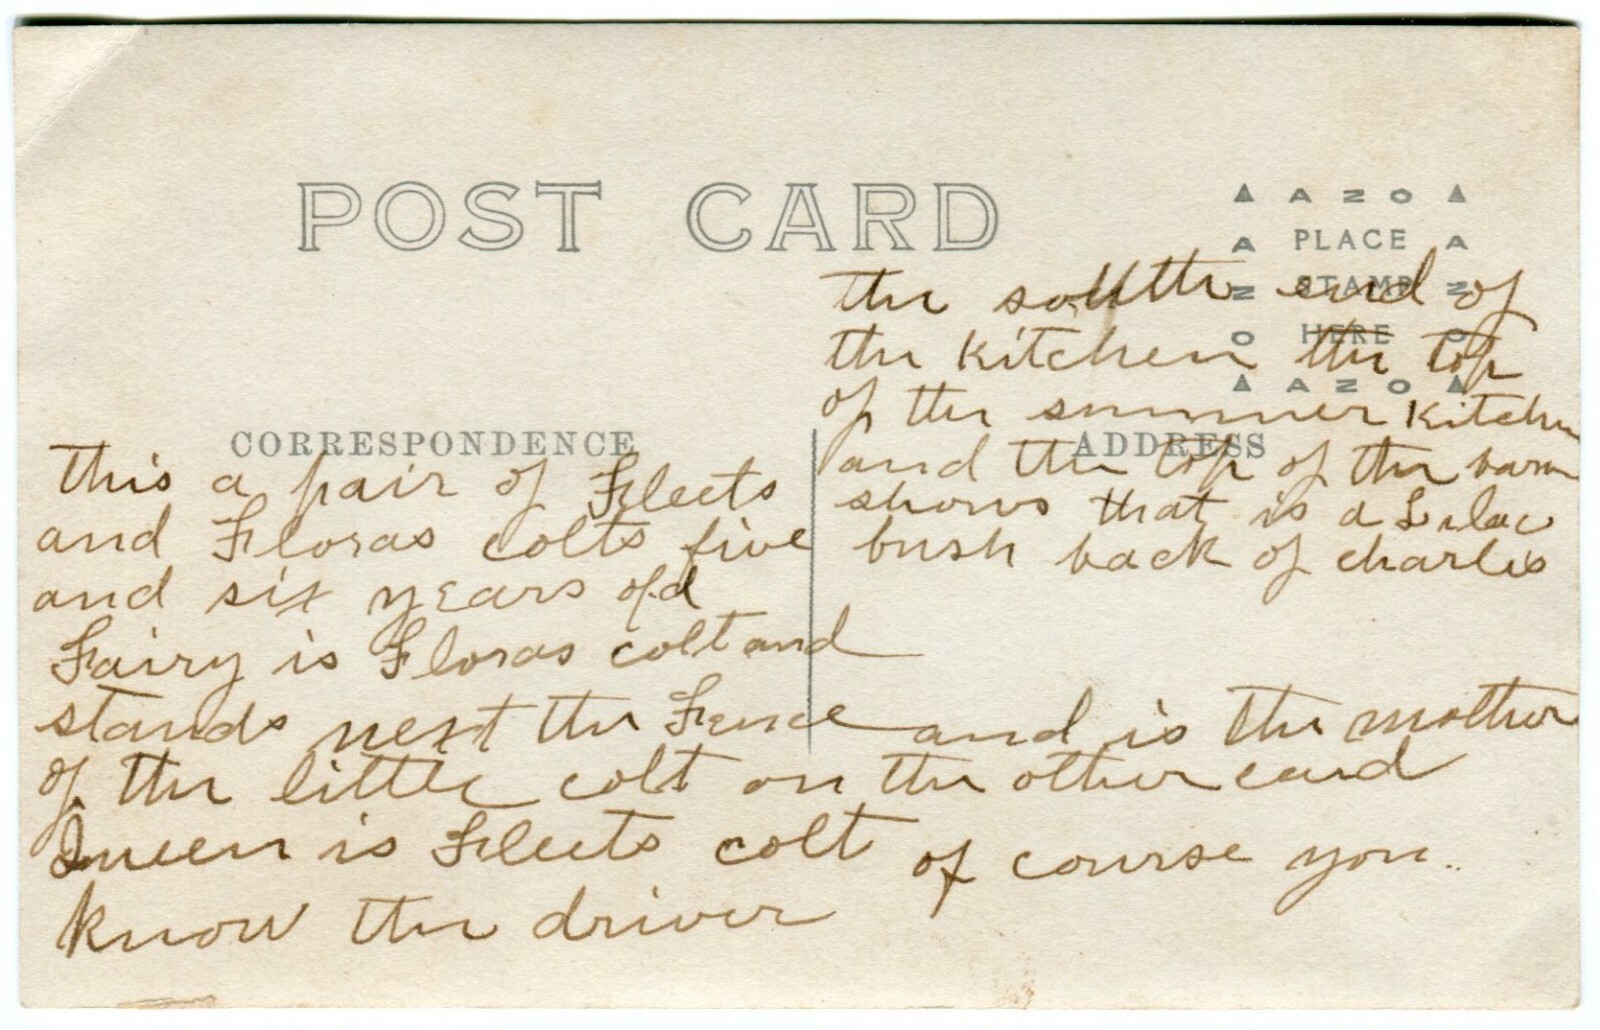 POST CARD
▲ AZO ▲
A PLACE A
N STAMP N
O HERE O
▲ AZO ▲
CORRESPONDENCE
ADDRESS
this a pair of Fleets
and Floras colts five
and six years old
Fairy is Floras colt and
stands next the Fence and is the mother
of the little colt on the other card
Queen is Fleets colt of course you
know the driver
the south end of
the Kitchen the top
of the summer Kitchen
and the top of the barn
shows that is a Lilac
bush back of charlie